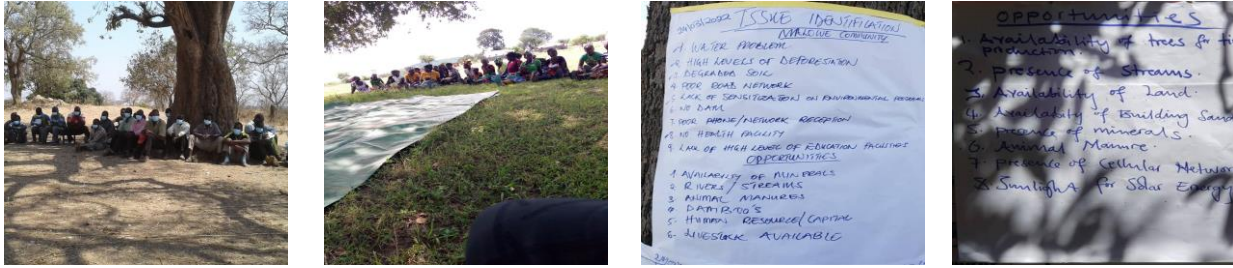 ISSUE IDENTIFICATION
COMMUNITY
1 WATER PROBLEM
2 HIGH LEVELS OF DEFORESTATION
3 DEGRADED SOIL
4 POOR ROAD NETWORK
5 LACK OF SENSITIZATION ON ENVIRONMENTAL
6 NO DAM
7 POOR PHONE/NETWORK RECEPTION
8 NO HEALTH FACILITY
9. LACK OF HIGH LEVEL OF EDUCATION FACILITIES
OPPORTUNITIES
1 AVAILABILITY OF MINERALS
2 RIVERS / STREAMS
3 ANIMAL MANURES
4
5. HUMAN RESOURCE/CAPITAL
6. LIVESTOCK AVAILABLE
OPPORTUNITIES
1. Availability of trees for
production.
2. presence of Streams.
3. Availability of Land.
4. of Building Sand
5. of minerals.
6. Animal Manure.
7. presence of Cellular
8. Sunlight for Solar Energy